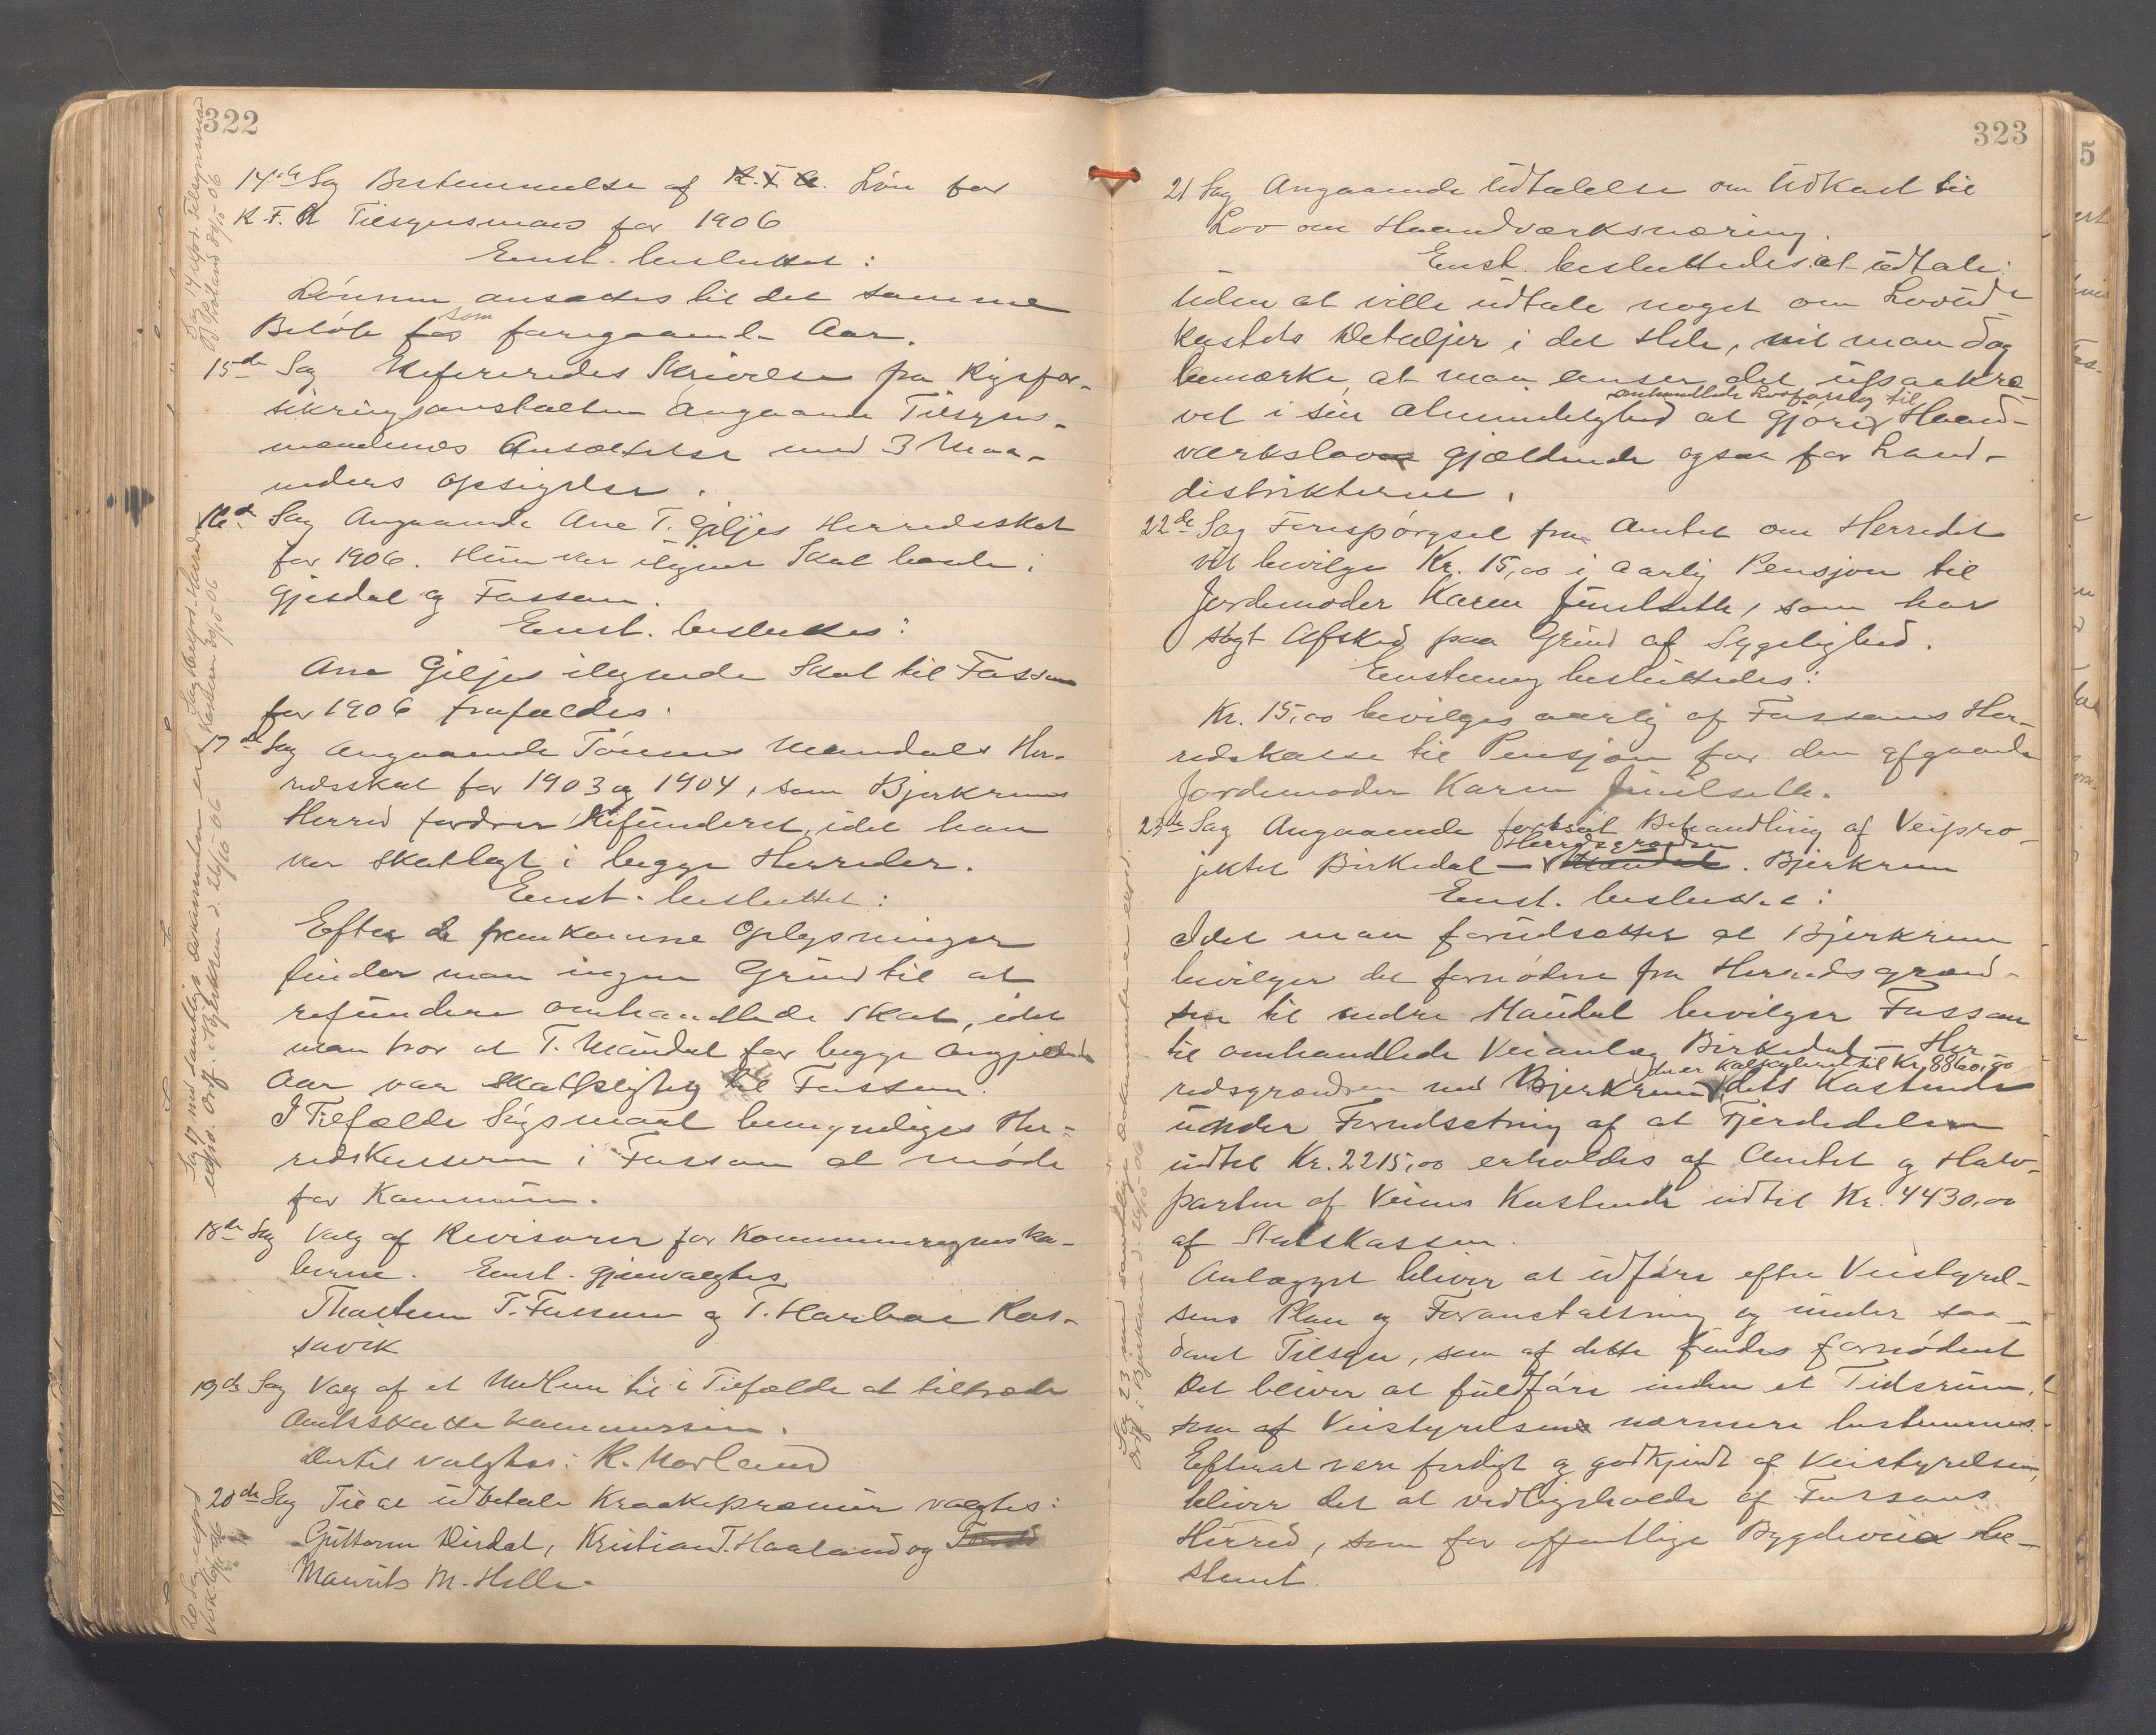 322
14de Sag Bestemmelse af K. F. A. Løn for
K. F. R Tilsynsmand for 1906
Enst. besluttet:
Lønnen ansættes til det samme
Beløb som foregaaende Aar.
15de Sag Refereredes Skrivelse fra Rigsfor-
sikringsanstalten angaaende Tilsyns-
mændenes Ansættelse med 3 Maa-
neders opsigelse.
16de Sag Angaaende Ane T. Giljes Herredsskat
for 1906. Hun var ilignet Skat baade i
Gjesdal og Fossan.
Enst. besluttes:
Ane Giljes ilignede Skat til Fossan
for 1906 frafaldes.
17de Sag angaaende Tønnes Maudals Her-
redsskat for 1903 og 1904, som Bjerkreims
Herred fordrer Refunderet, idet han
var skatlagt i begge Herreder.
Enst. besluttet:
Efter de fremkomne Oplysninger
finder man ingen Grund til at
refundere omhandlede Skat, idet
man tror at T. Maudal for begge angjeldende
Aar var skattepligtig til Fossan.
I Tilfælde Søgsmaal bemyndiges Her-
redskasseren i Fossan at møde
for Kommunen.
18de Sag Valg af Revisorer for Kommuneregnska-
berne. Enst. gjenvalgtes
Thorstein T. Fossan og T. Harboe Ros-
savik
19de Sag Valg af et Medlem til i Tilfælde at tiltræde
Amtsskattekommissionen.
Dertil valgtes: K. Norland
20de Sag Til at udbetale Kraakepræmier valgtes:
Guttorm Dirdal, Kristian T. Haaland og
Maurits M. Helle.
Sag 14 udsk. Tilsynsmand
Haaland 30/10 06
Sag 16 udskr. Herreds-
kasseren 30/10 06
Sag 17 med samtlige Dokumenter er
udskr. Ordf. i Bjerkreim d. 26/10 06
20 Sag udskr.
323
21 Sag Angaaende Udtalelse om Udkast til
Lov om Haandværksnæring.
Enst. besluttedes at udtale:
Uden at ville udtale noget om Lovud-
kastets Detaljer i det Hele, vil man dog
bemærke, at man anser det upaakræ-
omhandlede Lovforslag til
vet i sin Almindelighed at gjøre Haand-
værkslov gjældende ogsaa for Land-
distrikterne.
22de Sag Forespørgsel fra Amtet om Herredet
vil bevilge Kr. 15,00 i aarlig Pensjon til
Jordemoder Karen Juulseth, som har
søgt Afsked paa Grund af Sygelighed.
Enstemmig besluttedes:
Kr. 15,00 bevilges aarlig af Fossans Her-
redskasse til Pensjon for den afgaaende
Jordemoder Karen Juulseth.
23de Sag Angaaende fortsat Behandling af Veipro-
Herredsgrændsen
jektet Birkedal — Maudal. Bjerkreim
Enst. besluttet:
Idet man forudsætter at Bjerkreim
bevilger det fornødne fra Herredsgrænd-
sen til indre Maudal bevilger Fossan
til omhandlede Veianlæg Birkedal — Her-
der er Kalkuleret til Kr. 8860,00
redsgrændsen ved Bjerkreim dets Kostende
under Forudsætning af at Fjerdedelen
indtil Kr. 2215,00 erholdes af Amtet og Halv-
parten af Veiens Kostende indtil Kr. 4430,00
af Statskassen.
Anlægget bliver at udføre efter Veistyrel-
sens Plan og Foranstaltning og under saa-
dant Tilsyn, som af dette findes fornødent
Det bliver at fuldføre inden et Tidsrum,
som af Veistyrelsen nærmere bestemmes.
Efterat være færdigt og godkjendt af Veistyrelsen,
bliver det at vedligeholde af Fossans
Herred, som for offentlige Bygdeveie be-
stemt.
Sag 23 med samtlige Dokumenter er udskr.
Ordf. i Bjerkreim d. 26/10 06